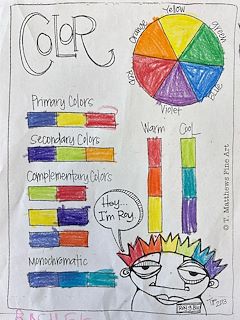 COLOR
Yellow
orange
green
Red
blue
Violet
Primary Colors
Secondary Colors
Complementary Colors
Monochromatic
Warm
Cool
Hey...
I'm Roy.
ROY G BIV
© T. Matthews Fine Art
RACHEL